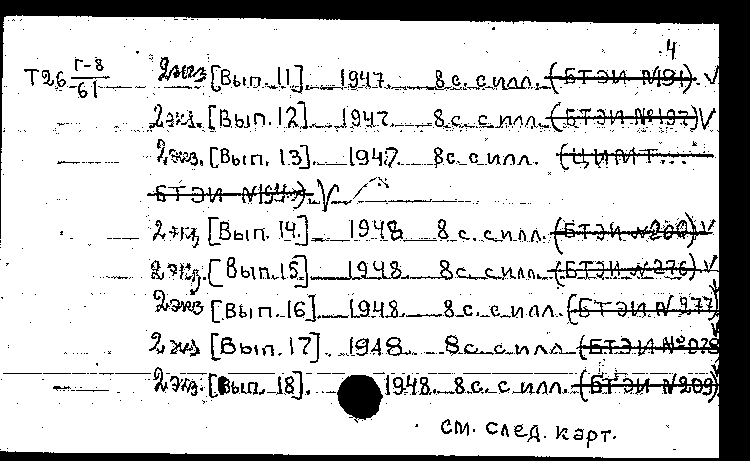 4
Т26 Г-8/61 2 экз [Вып. 11]. 1947. 8 с. с илл. (БТЭИ №191). V
2 экз. [Вып. 12]. 1947. 8 с. с илл. (БТЭИ №197) V
2 экз. [Вып. 13]. 1947. 8 с. с илл. (ЦИМТ...
БТЭИ). V
2 экз [Вып. 14.] 1948 8 с. с илл. (БТЭИ №200) V
2 экз. [Вып. 15] 1948. 8 с. с илл. (БТЭИ №276) V
2 экз [Вып. 16]. 1948. 8 с. с илл. (БТЭИ № 277) V
2 экз [Вып. 17]. 1948 8 с. с илл (БТЭИ
2 экз. [Вып. 18]. 1948. 8 с. с илл. (БТЭИ №209)
см. след. карт.